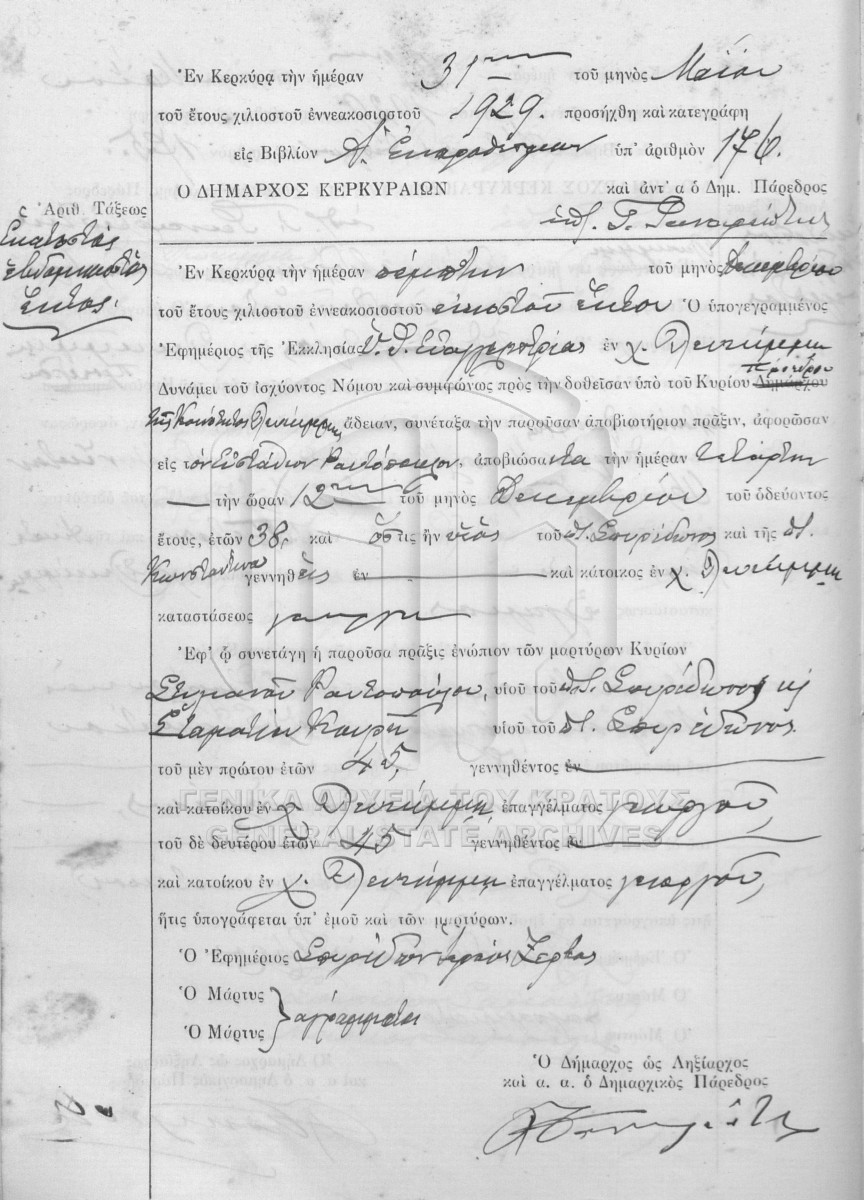 Ἐν Κερκύρᾳ τὴν ἡμέραν 31ην τοῦ μηνὸς Μαΐου
τοῦ ἔτους χιλιοστοῦ ἐννεακοσιοστοῦ 1929. προσήχθη καὶ κατεγράφη
εἰς Βιβλίον Α. ὑπ' ἀριθμὸν 176.
Ο ΔΗΜΑΡΧΟΣ ΚΕΡΚΥΡΑΙΩΝ καὶ ἀντ' α ὁ Δημ. Πάρεδρος
ὑπ. Γ.
Ἀριθ. Τάξεως
Ἑκατοστὸς
ἑβδομηκοστὸς
ἕκτος.
Ἐν Κερκύρᾳ τὴν ἡμέραν πέμπτην τοῦ μηνὸς Δεκεμβρίου
τοῦ ἔτους χιλιοστοῦ ἐννεακοσιοστοῦ εἰκοστοῦ ἕκτου Ὁ ὑπογεγραμμένος
Ἐφημέριος τῆς Ἐκκλησίας Ὑ. Θ. Εὐαγγελιστρίας ἐν χ. Λευκίμμῃ
Δυνάμει τοῦ ἰσχύοντος Νόμου καὶ συμφώνως πρὸς τὴν δοθεῖσαν ὑπὸ τοῦ Κυρίου Δημάρχου Προέδρου
τῆς Κοινότητος Λευκίμμης ἄδειαν, συνέταξα τὴν παροῦσαν ἀποβιωτήριον πρᾶξιν, ἀφορῶσαν
εἰς τὸν Εὐστάθιον Ραυτόπουλον, ἀποβιώσαντα τὴν ἡμέραν τετάρτην
τὴν ὥραν 12ην τοῦ μηνὸς Δεκεμβρίου τοῦ ὁδεύοντος
ἔτους, ἐτῶν 38, καὶ ὅστις ἦν υἱὸς τοῦ ποτ. Σπυρίδωνος καὶ τῆς ποτ.
Κωνσταντίνα γεννηθεὶς ἐν καὶ κάτοικος ἐν χ. Λευκίμμῃ
καταστάσεως
Ἐφ' ᾧ συνετάγη ἡ παροῦσα πρᾶξις ἐνώπιον τῶν μαρτύρων Κυρίων
Στυλιανοῦ Ραυτοπούλου, υἱοῦ τοῦ ποτ. Σπυρίδωνος κ
Σταματίου Κουρῆ υἱοῦ τοῦ ποτ. Σπυρίδωνος
τοῦ μὲν πρώτου ἐτῶν 45, γεννηθέντος ἐν
καὶ κατοίκου ἐν χ. Λευκίμμῃ ἐπαγγέλματος γεωργοῦ,
τοῦ δὲ δευτέρου ἐτῶν 45 γεννηθέντος ἐν
καὶ κατοίκου ἐν χ. Λευκίμμῃ ἐπαγγέλματος γεωργοῦ,
ἥτις ὑπογράφεται ὑπ' ἐμοῦ καὶ τῶν μαρτύρων.
Ὁ Ἐφημέριος Σπυρίδων ἱερεὺς Ζερβὸς
Ὁ Μάρτυς
Ὁ Μάρτυς ἀγράμματοι
Ὁ Δήμαρχος ὡς Ληξίαρχος
καὶ α. α. ὁ Δημαρχικὸς Πάρεδρος
ΓΕΝΙΚΑ ΑΡΧΕΙΑ ΤΟΥ ΚΡΑΤΟΥΣ
GENERAL STATE ARCHIVES